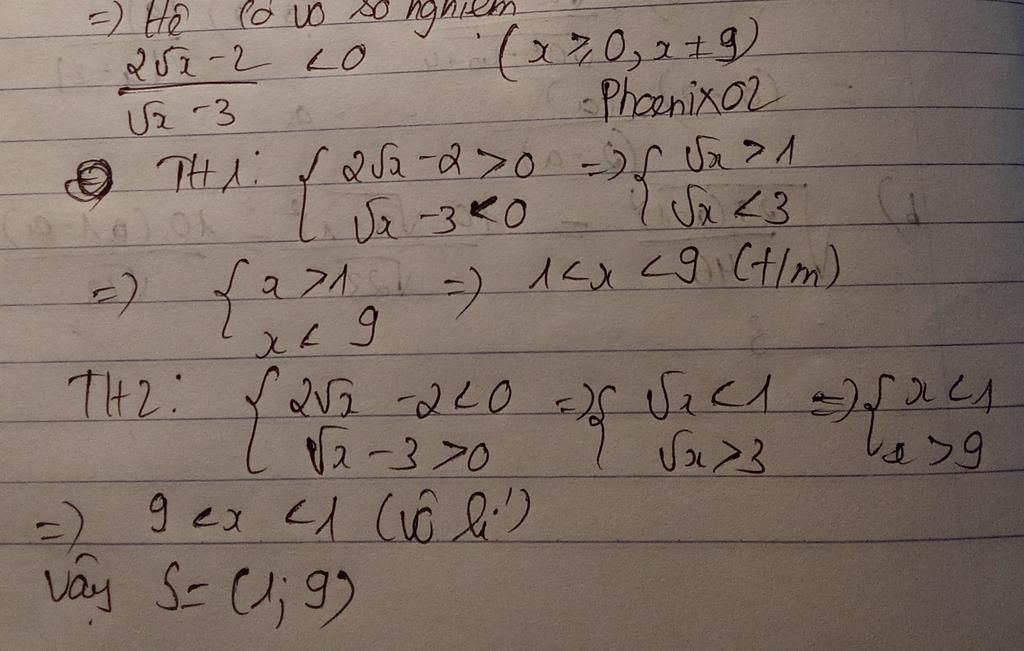 =) Hệ có vô số nghiệm
(2√x - 2)/(√x - 3) < 0 (x ≥ 0, x ≠ 9)
Phoenix02
TH1: { 2√x - 2 > 0 =) { √x > 1
√x - 3 < 0 √x < 3
=) { x > 1 =) 1 < x < 9 (t/m)
x < 9
TH2: { 2√x - 2 < 0 =) { √x < 1 =) { x < 1
√x - 3 > 0 √x > 3 x > 9
=) 9 < x < 1 (vô lí)
Vậy S = (1; 9)